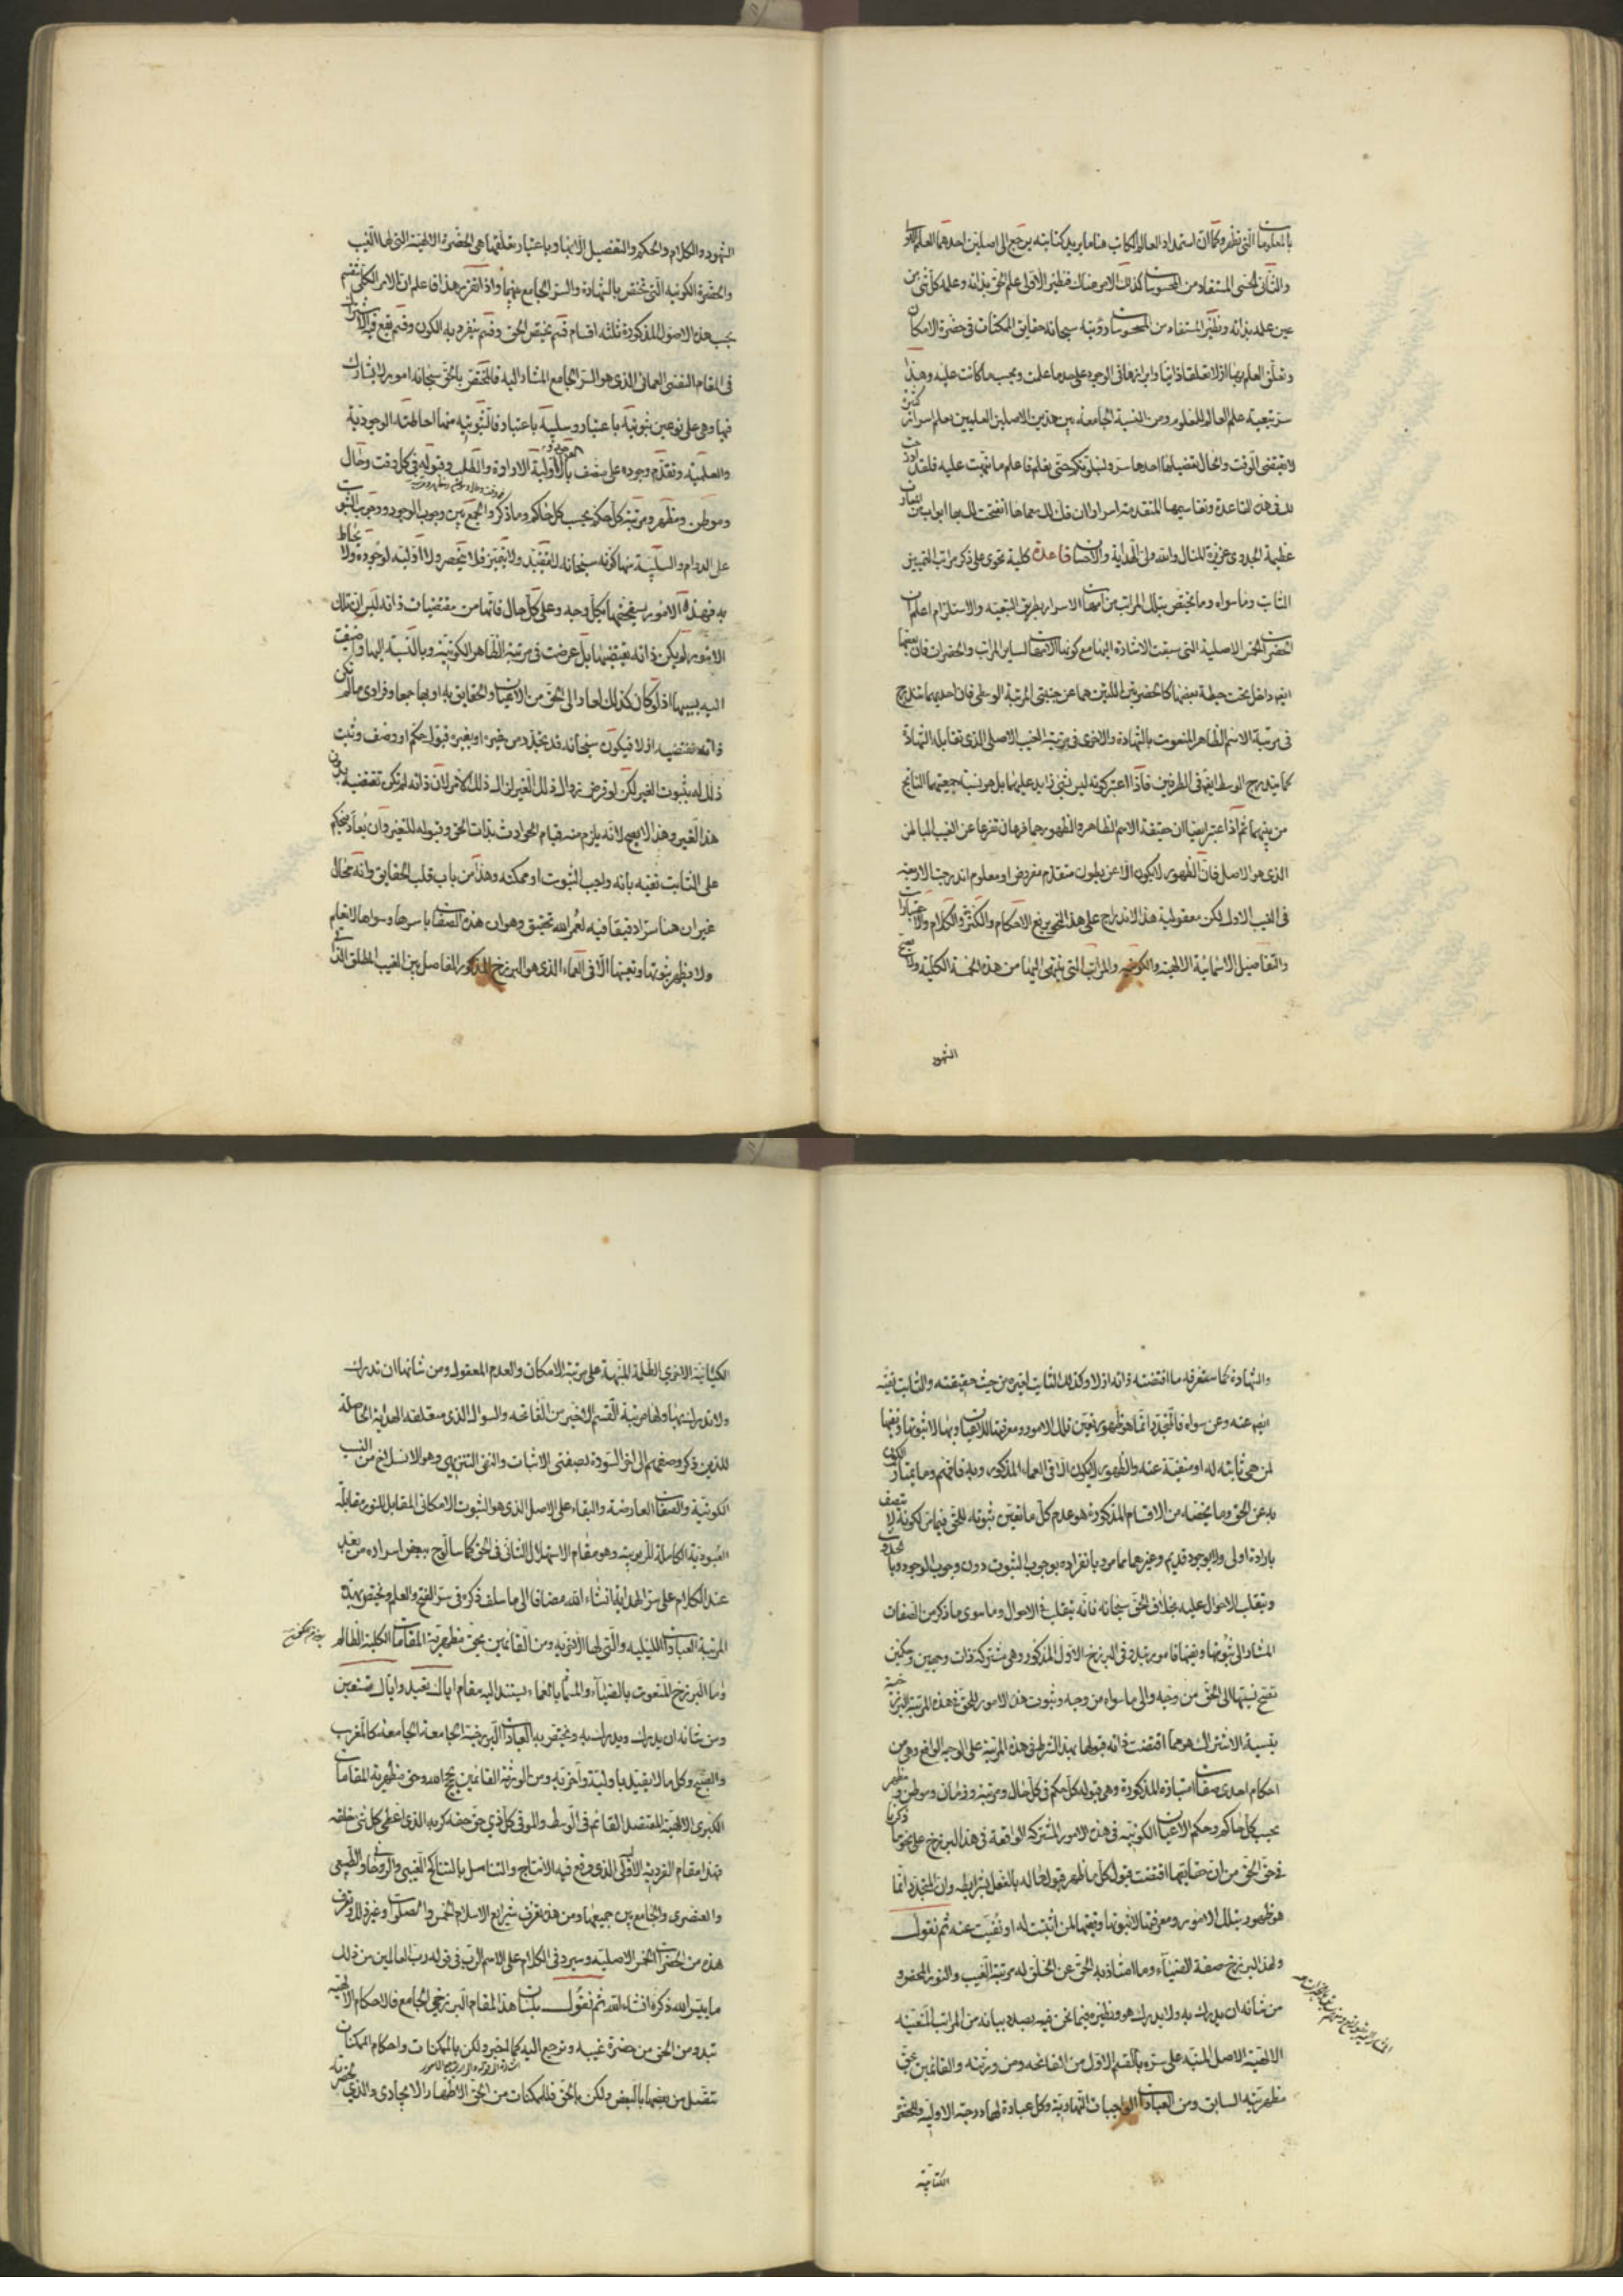 بالمعلومات التى تظهر وكما ان استمداد العالم الكاتب هنا ما يريد كتابته يرجع الى اصلين احدهما العلم الاولى
والثانى الحسى المستفاد من المحسوسات كذلك الامر هناك فنظير الاولى علم الحق بذاته وعلمه كل شئ من
عين علمه بذاته ونظير المستفاد من المحسوسات رؤيته سبحانه حقايق الممكنات فى حضرة الامكان
وتعلق العلم بها ازلا تعلقا ذاتيا وابرازها فى الوجود على حد ما علمت وبحسب ما كانت عليه وهذا
سر تبعية علم العالم للمعلوم ومن النسبة الجامعة بين هذين الاصلين العلميين يعلم اسرار كثيرة
لا يقتضى الوقت والحال تفصيلها احدها سر ولنبلونكم حتى نعلم فاعلم ما نبهت عليه فلقد ادرجت
لك فى هذه القاعدة وتفاسيمها المتقدمة اسرارا ان فك لك معماها انفتحت لك بها ابواب من المعارف
عظيمة الجدوى عزيزة المنال والله ولى الهداية والاحسان قاعدة كلية تحوى على ذكر مراتب التمييز
الثابت وما سواه وما يختص بتلك المراتب من امهات الاسرار بطريق التبعية والاستلزام اعلم ان
الحضرات الخمس الاصلية التى سبقت الاشارة اليها مع كونها الامهات لساير المراتب والحضرات فان بعضها
ايضا داخل تحت حيطة بعضها كالحضرتين اللتين هما عن جنبتى المرتبة الوسطى فان احديهما تندرج
فى مرتبة الاسم الظاهر المنعوت بالشهادة والاخرى فى مرتبة الغيب الاصلى الذى تقابله الشهادة
كما يندرج الوسط ايضا فى الطرفين فاذا اعتبر كونه ليس بشئ زايد عليهما بل هو نسبة جمعهما الناتج
من بينهما ثم اذا اعتبر ايضا ان حقيقة الاسم الظاهر والظهور هما فرعان تفرعا عن الغيب الباطن
الذى هو الاصل فان الظهور لا يكون الا عن بطون متقدم مفروض او معلوم اندرجت الاربعة
فى الغيب الاول لكن معقولية هذا الاندراج على هذا النحو يرفع الاحكام والكثرة والكلام والاعتبارات
والتفاصيل الاسمائية الالهية والكونية والمراتب التى ينتهى اليها من هذه الخمسة الكلية ولا يصح
الشهود
الشهود والكلام والحكم والتفصيل الا بها وباعتبار تعلقها هى الحضرة الالهية التى لها الغيب
والحضرة الكونية التى تختص بالشهادة والسر الجامع بينهما واذا تقرر هذا فاعلم ان الامر الكلى ينقسم
بحسب هذه الاصول المذكورة ثلثة اقسام قسم يختص الحق وقسم ينفرد به الكون وقسم يقع فيه الاشتراك
فى المقام النفسى العمائى الذى هو السر الجامع المشار اليه فالمختص بالحق سبحانه امور لا يشارك
فيها وهى على نوعين ثبوتية باعتبار وسلبية باعتبار فالثبوتية منها احاطته الوجودية
والعلمية وتقدم وجوده على متصف بالاولية الارادة والطلب وقبوله فى كل وقت وحال
وموطن ومظهر ومرتبة كل حكم بحسب كل حاكم وما ذكر والجمع بين وجوب الوجود ووجوب الثبوت
على الدوام والسلبية منها كونه سبحانه لا يتقيد ولا يتميز ولا ينحصر ولا اولية لوجوده ولا يحاط
به فهذه الامور يستحقها بكل وجه وعلى كل حال فانها من مقتضيات ذاته ليس ان تلك
الامور لم يكن ذاته يقتضيها بل عرضت فى مرتبة الظاهر الكونية وبالنسبة اليها واضيفت
اليه بسببها اذ لو كان كذلك لعاد الى الحق من الاعيان والحقايق به او بها جمعا وفرادى ما لم تكن
ذاته تقتضيه ازلا فيكون سبحانه قد تجدد من غيره او بغيره قبول حكم او وصف وثبت
ذلك له بثبوت الغير لكن لو فرض زوال ذلك الغير لزال ذلك الامر لان ذاته لم تكن تقتضيه بدون
هذا الغير وهذا لا يصح لانه يلزم منه قيام الحوادث بذات الحق وقبوله للتغير وان يعاد فيحكم
على الثابت نفيه بانه واجب الثبوت او ممكنه وهذا من باب قلب الحقايق وانه محال
غير ان هنا سرا دقيقا فيه لعمر الله تحقيق وهو ان هذه الصفات باسرها وسواها لا تعلم
ولا يظهر ثبوتها وتعينها الا فى العماء الذى هو البرزخ المذكور الفاصل بين الغيب المطلق الذاتى
والشهادة كما ستعرفه ما اقتضته ذاته ازلا وكذلك الثابت لغيره من حيث حقيقته والثابت نفيه
ايضا عنه وعن سواه فالمتجدد انما هو ظهور تعين تلك الامور ومعرفتها للاعيان وبها لا ثبوتها ونفيها
لمن هى ثابتة له او منفية عنه والظهور لا يكون الا فى العماء المذكور وبه فافهم وما يمتاز الكون
به عن الحق وما يخصه من الاقسام المذكورة هو عدم كل ما تعين ثبوته للحق فيما مر لكونه لا يتصف
بارادة اولى ولا بوجود قديم وغيرهما مما مر وبانفراده بوجوب الثبوت دون وجوب الوجود وبالحدوث
وتقلب الاحوال عليه بخلاف الحق سبحانه فانه يتقلب فى الاحوال وما سوى ما ذكر من الصفات
المشار الى ثبوتها ونفيها فامور تبدو فى البرزخ الاول المذكور وهى مشتركة ذات وجهين وحكمين
تصح نسبتها الى الحق من وجه والى ما سواه من وجه وثبوت هذه الامور للحق فى هذه المرتبة البرزخية
بنسبة الاشتراك هو مما اقتضت ذاته قبولها بهذا الشرط فى هذه المرتبة على الوجه الواقع وهى من
احكام احدى صفات امتيازه المذكورة وهى قبوله كل حكم فى كل حال ومرتبة وزمان وموطن ومظهر
بحسب كل حاكم وحكم الاعيان الكونية فى هذه الامور المشتركة الواقعة فى هذا البرزخ على نحو ما ذكرنا
فى حق الحق من ان حقايقها اقتضت قبول كل ما ظهر قبولها له بالفعل بشرايطه وان المتجدد انما
هو ظهور تلك الامور ومعرفتها لا ثبوتها ونفيها لمن اثبتت له او نفيت عنه ثم نقول
ولهذا البرزخ صفة الضياء وما امتاز به الحق عن الخلق له مرتبة الغيب والنور المحض و
من شانه ان يدرك به ولا يدرك هو ونظيره فيما نحن فيه بصدد بيانه من المراتب المتعينة
الالهية الاصل المنبه على سره بالقسم الاول من الفاتحه ومن ورثته والقائمين بحق
مظهريته السابق ومن العبادات الواجبات النهارية وكل عبادة لها درجة الاولية وللحضرة
الكتابية
الكيانية الاخرى الظلمة المنبهة على مرتبة الامكان والعدم المعقول ومن شانها ان تدرك
ولا تدرك بها ولها مرتبة القسم الاخير من الفاتحة والسوال الذى متعلقه الهداية الحاصلة
للذين ذكر وصفهم الى اخر السورة بصفتى الاثبات والنفى التنزيهى وهو الانسلاخ من النسب
الكونية والصفات العارضة والبقاء على الاصل الذى هو الثبوت الامكانى المقابل للنور مقابلة
العبودية الكاملة للربوبية وهو مقام الاستهلاك الثانى فى الحق كما سالوح ببعض اسراره من بعد
عند الكلام على سر الهداية انشاء الله مضافا الى ما سلف ذكره فى سر الفتح والعلم ويختص بهذه
المرتبة العبادات الليلية والتى لها الاخروية ومن القائمين بحق مظهرية المقامات الكلية الظالم
واما البرزخ المنعوت بالضياء والمسمى بالعماء يستند اليه مقام اياك نعبد واياك نستعين
ومن شانه ان يدرك ويدرك به ويختص به العبادات البرزخية الجامعة كالمغرب
والصبح وكل ما لا يتقيد باولية واخرية ومن الورثة القائمين بحجج الله وحق مظهرية المقامات
الكبرى الالهية المقتصد القائم فى الوسط والموفى كل ذى حق حقه كربه الذى اعطى كل شئ خلقه
فهذا مقام الفردية الاولى الذى وقع فيه الانتاج والتناسل بالنتاج الغيبى والروحانى والطبيعى
والعنصرى والجامع بين جميعها ومن هذه تعرف شرايع الاسلام الخمس والصلوات وغير ذلك وتعرف
هذه من الحضرات الخمس الاصلية وسيرد فى الكلام على الاسم الرب فى قوله رب العالمين من ذلك
ما ييسر الله ذكره انشاء الله ثم نقول بلسان هذا المقام البرزخى الجامع فالاحكام الالهية
تبدو من الحق من حضرة غيبه وترجع اليه كما اخبر ولكن بالممكنات واحكام الممكنات
تتصل من بعضها بالبعض ولكن بالحق فللممكنات من الحق الاظهار الايجادى والذى لحضرته